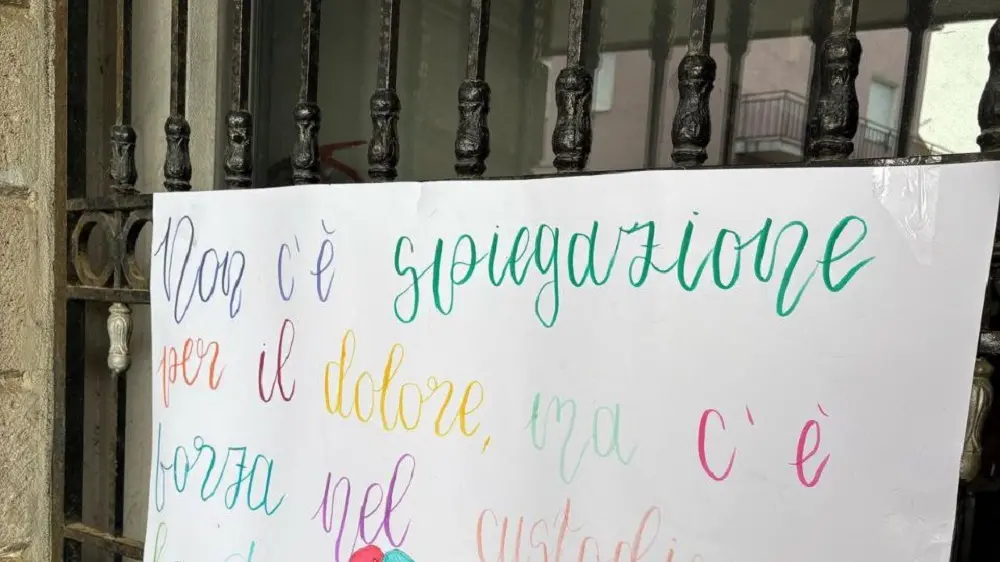 Non c'è spiegazione
per il dolore, ma c'è
forza nel custodi